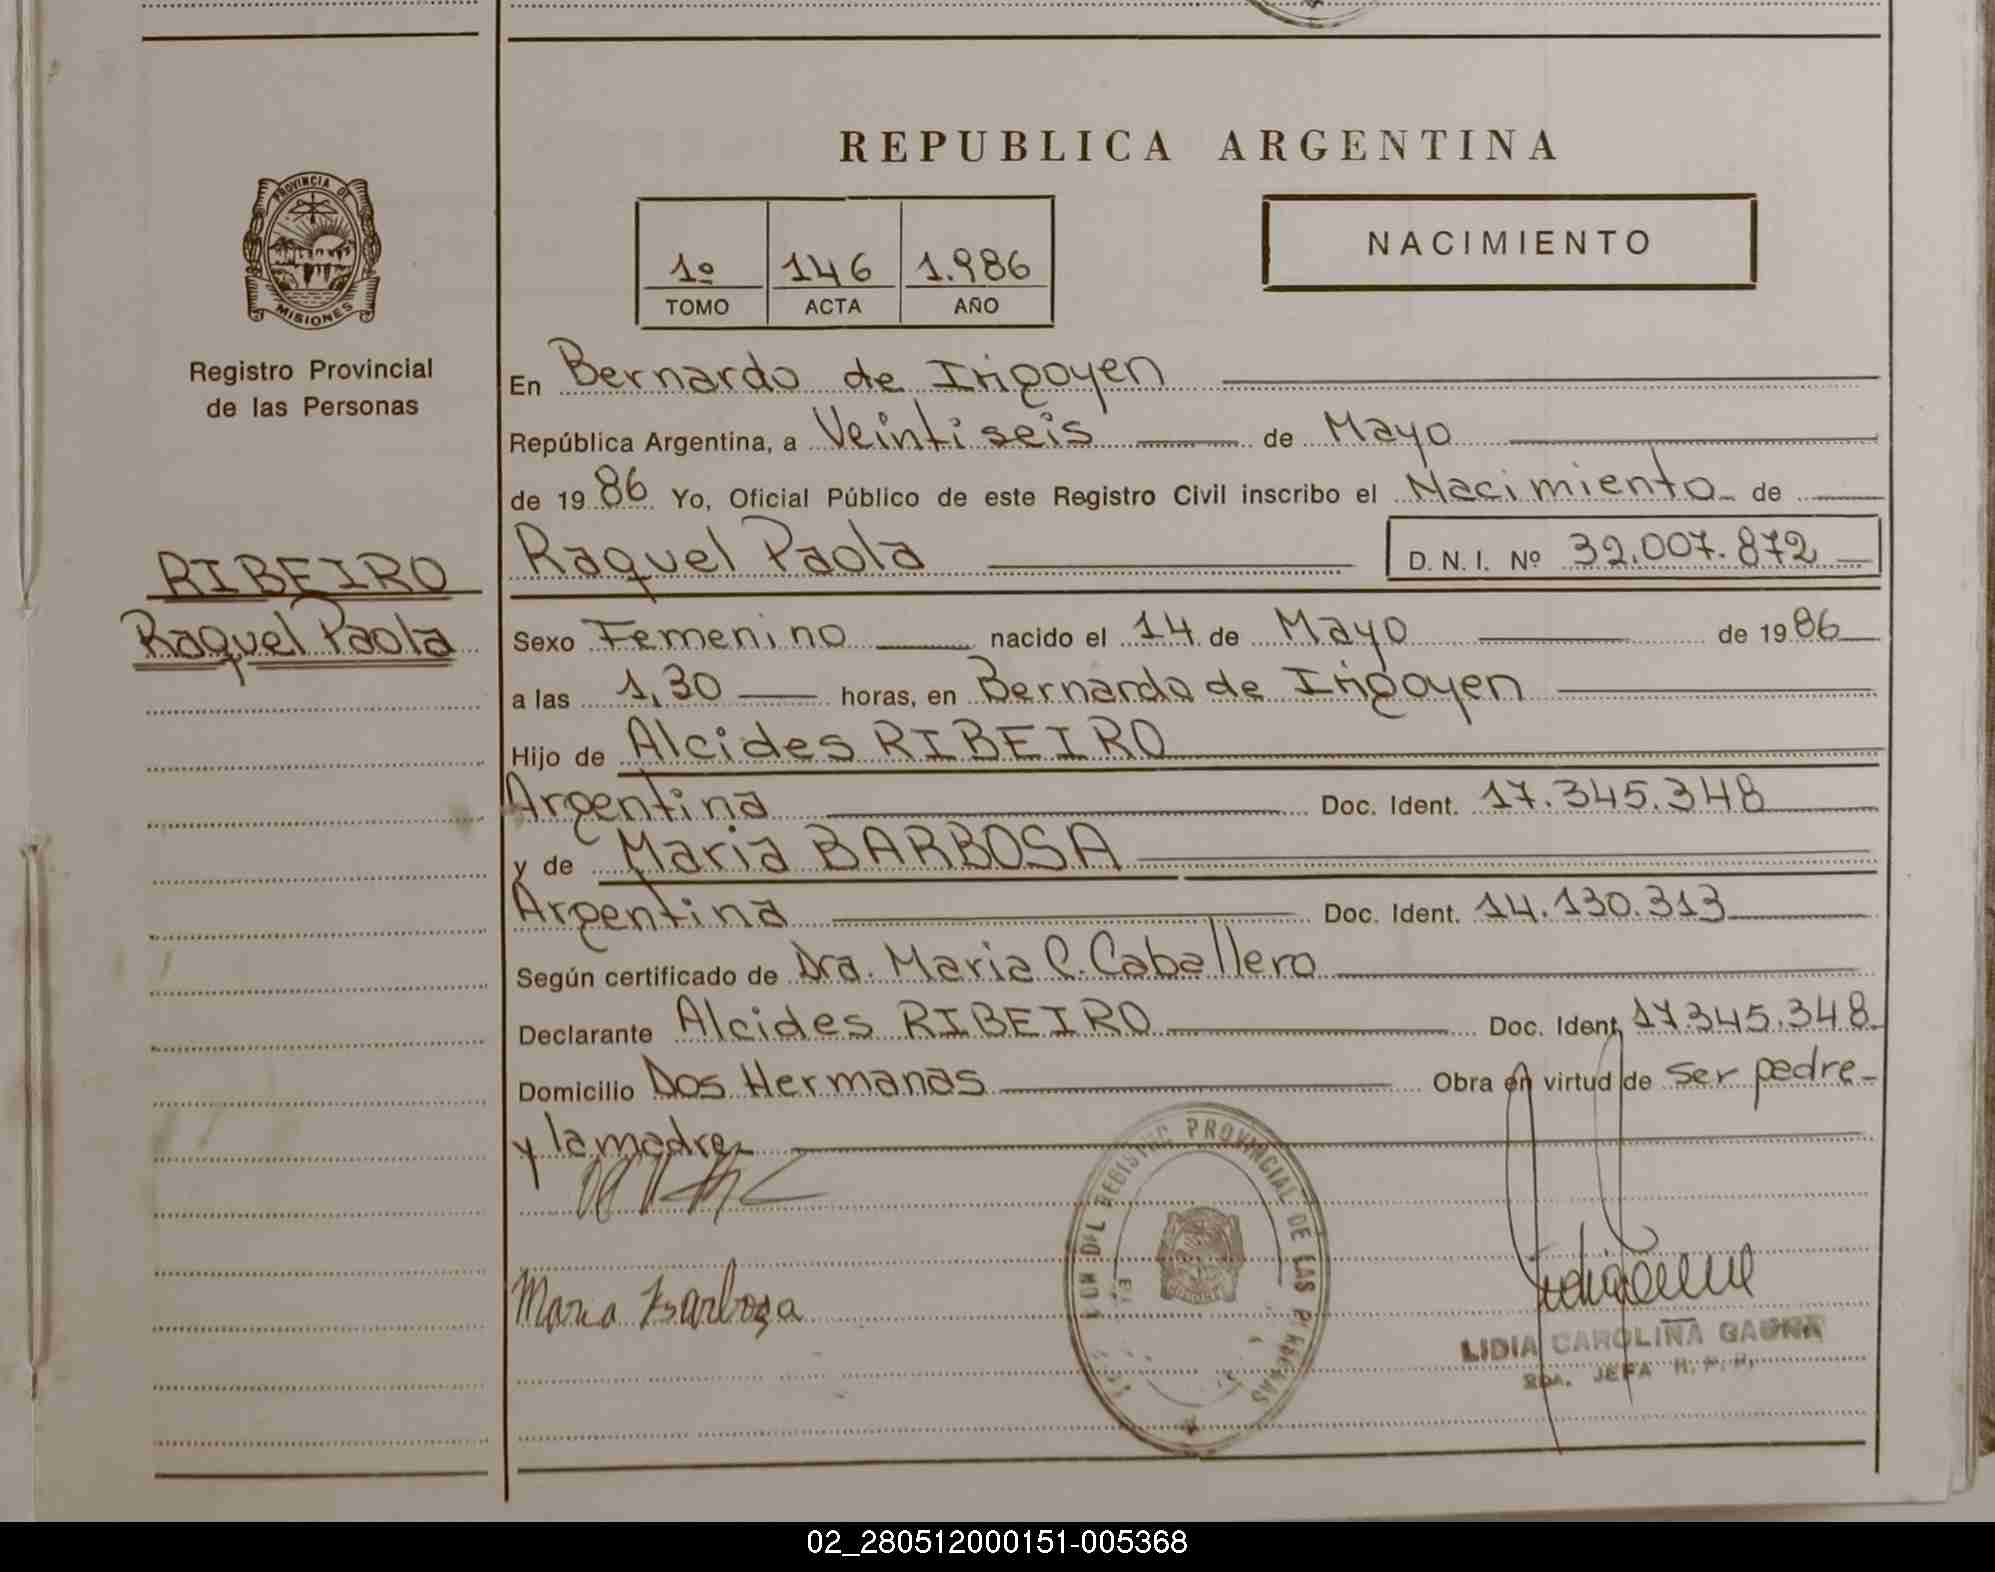 REPUBLICA ARGENTINA
PROVINCIA DE
MISIONES
Registro Provincial
de las Personas
RIBEIRO
Raquel Paola
1º 146 1.986
TOMO ACTA AÑO
NACIMIENTO
En Bernardo de Irigoyen
República Argentina, a Veinti seis de Mayo
de 19 86 Yo, Oficial Público de este Registro Civil inscribo el Nacimiento de
Raquel Paola D. N. I. Nº 32.007.872
Sexo Femenino nacido el 14 de Mayo de 19 86
a las 1,30 horas, en Bernardo de Irigoyen
Hijo de Alcides RIBEIRO
Argentina Doc. Ident. 17.345.348
y de Maria BARBOSA
Argentina Doc. Ident. 14.130.313
Según certificado de Dra. Maria C. Caballero
Declarante Alcides RIBEIRO Doc. Ident. 17.345.348
Domicilio Dos Hermanas Obra en virtud de ser padre
y la madre
Maria Barboza
REGISTRO PROVINCIAL DE LAS PERSONAS
LIDIA CAROLINA GAUNA
JEFA R. P. P.
02_280512000151-005368